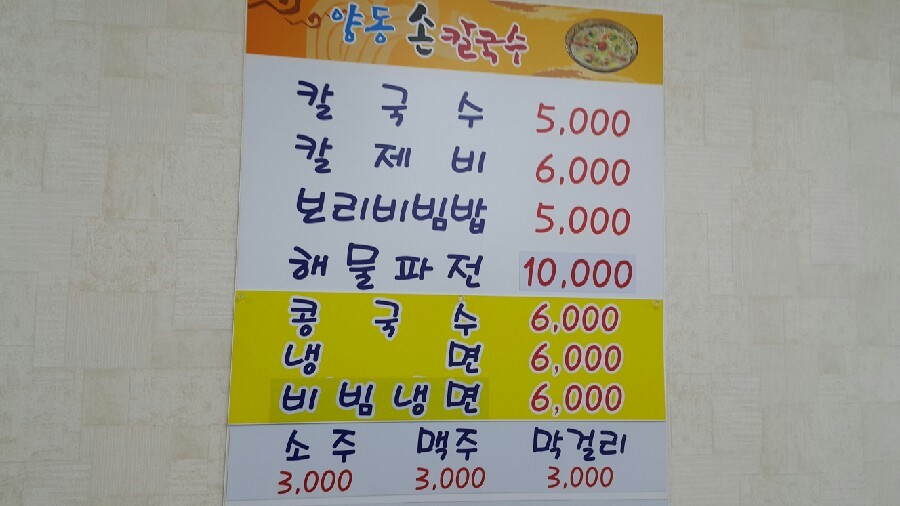 양동 손칼국수
칼 국 수 5,000
칼 제 비 6,000
보리비빔밥 5,000
해 물 파 전 10,000
콩 국 수 6,000
냉 면 6,000
비 빔 냉 면 6,000
소 주 맥주 막걸리
3,000 3,000 3,000